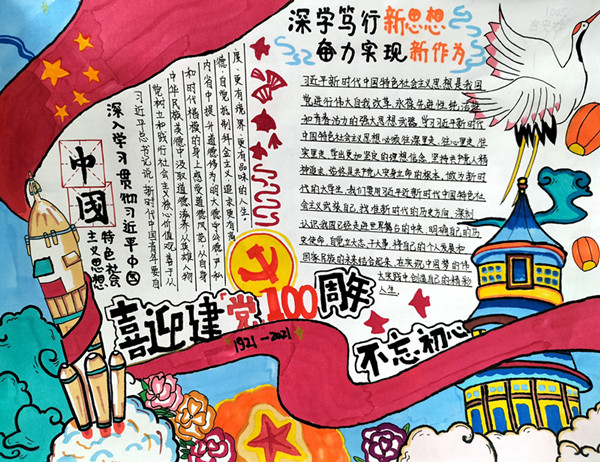 深学笃行新思想
奋力实现新作为
习近平新时代中国特色社会主义思想是我国
党进行伟大自我改革,永葆先进性纯洁
和青春活力的强大思想武器,学习近平新时代
中国特色社会主义思想必须往深里走、往心里走,往
实里走,带着更加坚定的理想信念,坚持共产人精
神追求,始终是共产人安身立命的根本,做为新时
代的大学生,我们要用习近平新时代中国特色社
会主义武装自己,找准新时代的历史方向,深刻
认识我国已经走进世界舞台的中央,明确自己的历
史使命,自觉立大志、干大事,将自己的个人发展和
国家民族的未来结合起来,在实现中国梦的伟
大实践中创造自己的精彩
人生
度,更有境界,更有品味的人生。
德,自觉抵制拜金主义,追求更有高
内省中提升道德修为,明大德守公德严私
和时代楷模的身上感受道德风范,从自身
中华民族美德中汲取道德滋养,从英雄人物
党树立和践行社会主义核心价值观,善于从
习近平总书记说,新时代中国青年要自
中国
深入学习贯彻习近平中国
特色社会
主义思想
喜迎建党100周年
1921-2021
不忘初心